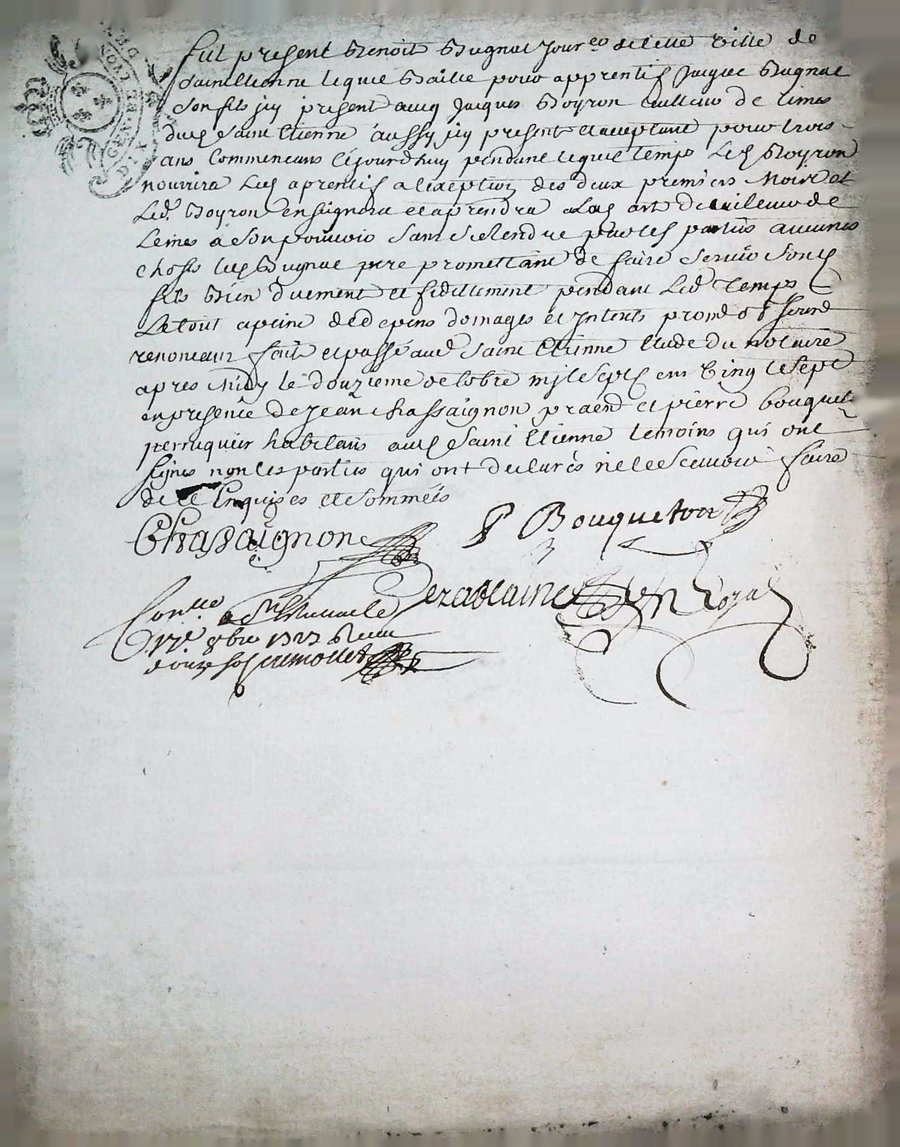 fut present Benoit Bugnat Jour.eo de cette ville de
Saint Etienne lequel Baille pour apprentif Jacque Bugnat
Son fils icy present aveq Jacques Boyron tailleur de limes
dud Saint Etienne aussy icy present et aceptant pour trois
ans Commencans ce jourdhuy pendant lequel temps Led Boyron
nourrira Led aprentif a lexeption des deux premiers Mois et
Led. Boyron enseignera et aprendra aud art de tailleur de
Limes a son pouvoir Sans les parties aucunes
choses led Bugnat pere promettant de faire Servir Sond
fils Bien duement et fidellement pendant Led Temps
Le tout a peine de depens domages et Interets
renonceant fait et passé aud Saint Etienne Etude du notaire
apres midy le douzieme octobre mil Sept cens Vingt et Sept
en presence de Jean Chassaignon praen et pierre bouquet
perruquier habitans aud Saint Etienne temoins qui ont
signes non les parties qui ont declarés ne le scavoir faire
de ce Enquises et sommées
Chasaignon P Bouqueton
Dezablaine Royal
Con.llé a St Etienne le
17.e 8bre 1727 Recu
douze sols